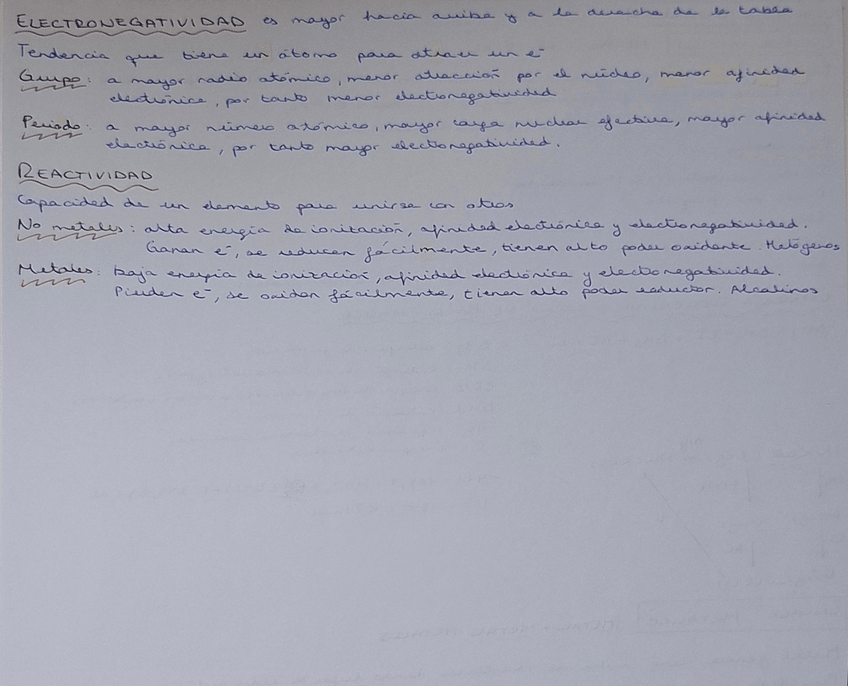 ELECTRONEGATIVIDAD es mayor hacia arriba y a la derecha de la tabla
Tendencia que tiene un átomo para atraer un e-
Grupo: a mayor radio atómico, menor atracción por el núcleo, menor afinidad
electrónica, por tanto menor electronegatividad
Periodo: a mayor número atómico, mayor carga nuclear efectiva, mayor afinidad
electrónica, por tanto mayor electronegatividad.
REACTIVIDAD
Capacidad de un elemento para unirse con otros
No metales: alta energía de ionización, afinidad electrónica y electronegatividad.
Ganan e-, se reducen fácilmente, tienen alto poder oxidante. Halógenos
Metales: baja energía de ionización, afinidad electrónica y electronegatividad.
Pierden e-, se oxidan fácilmente, tienen alto poder reductor. Alcalinos